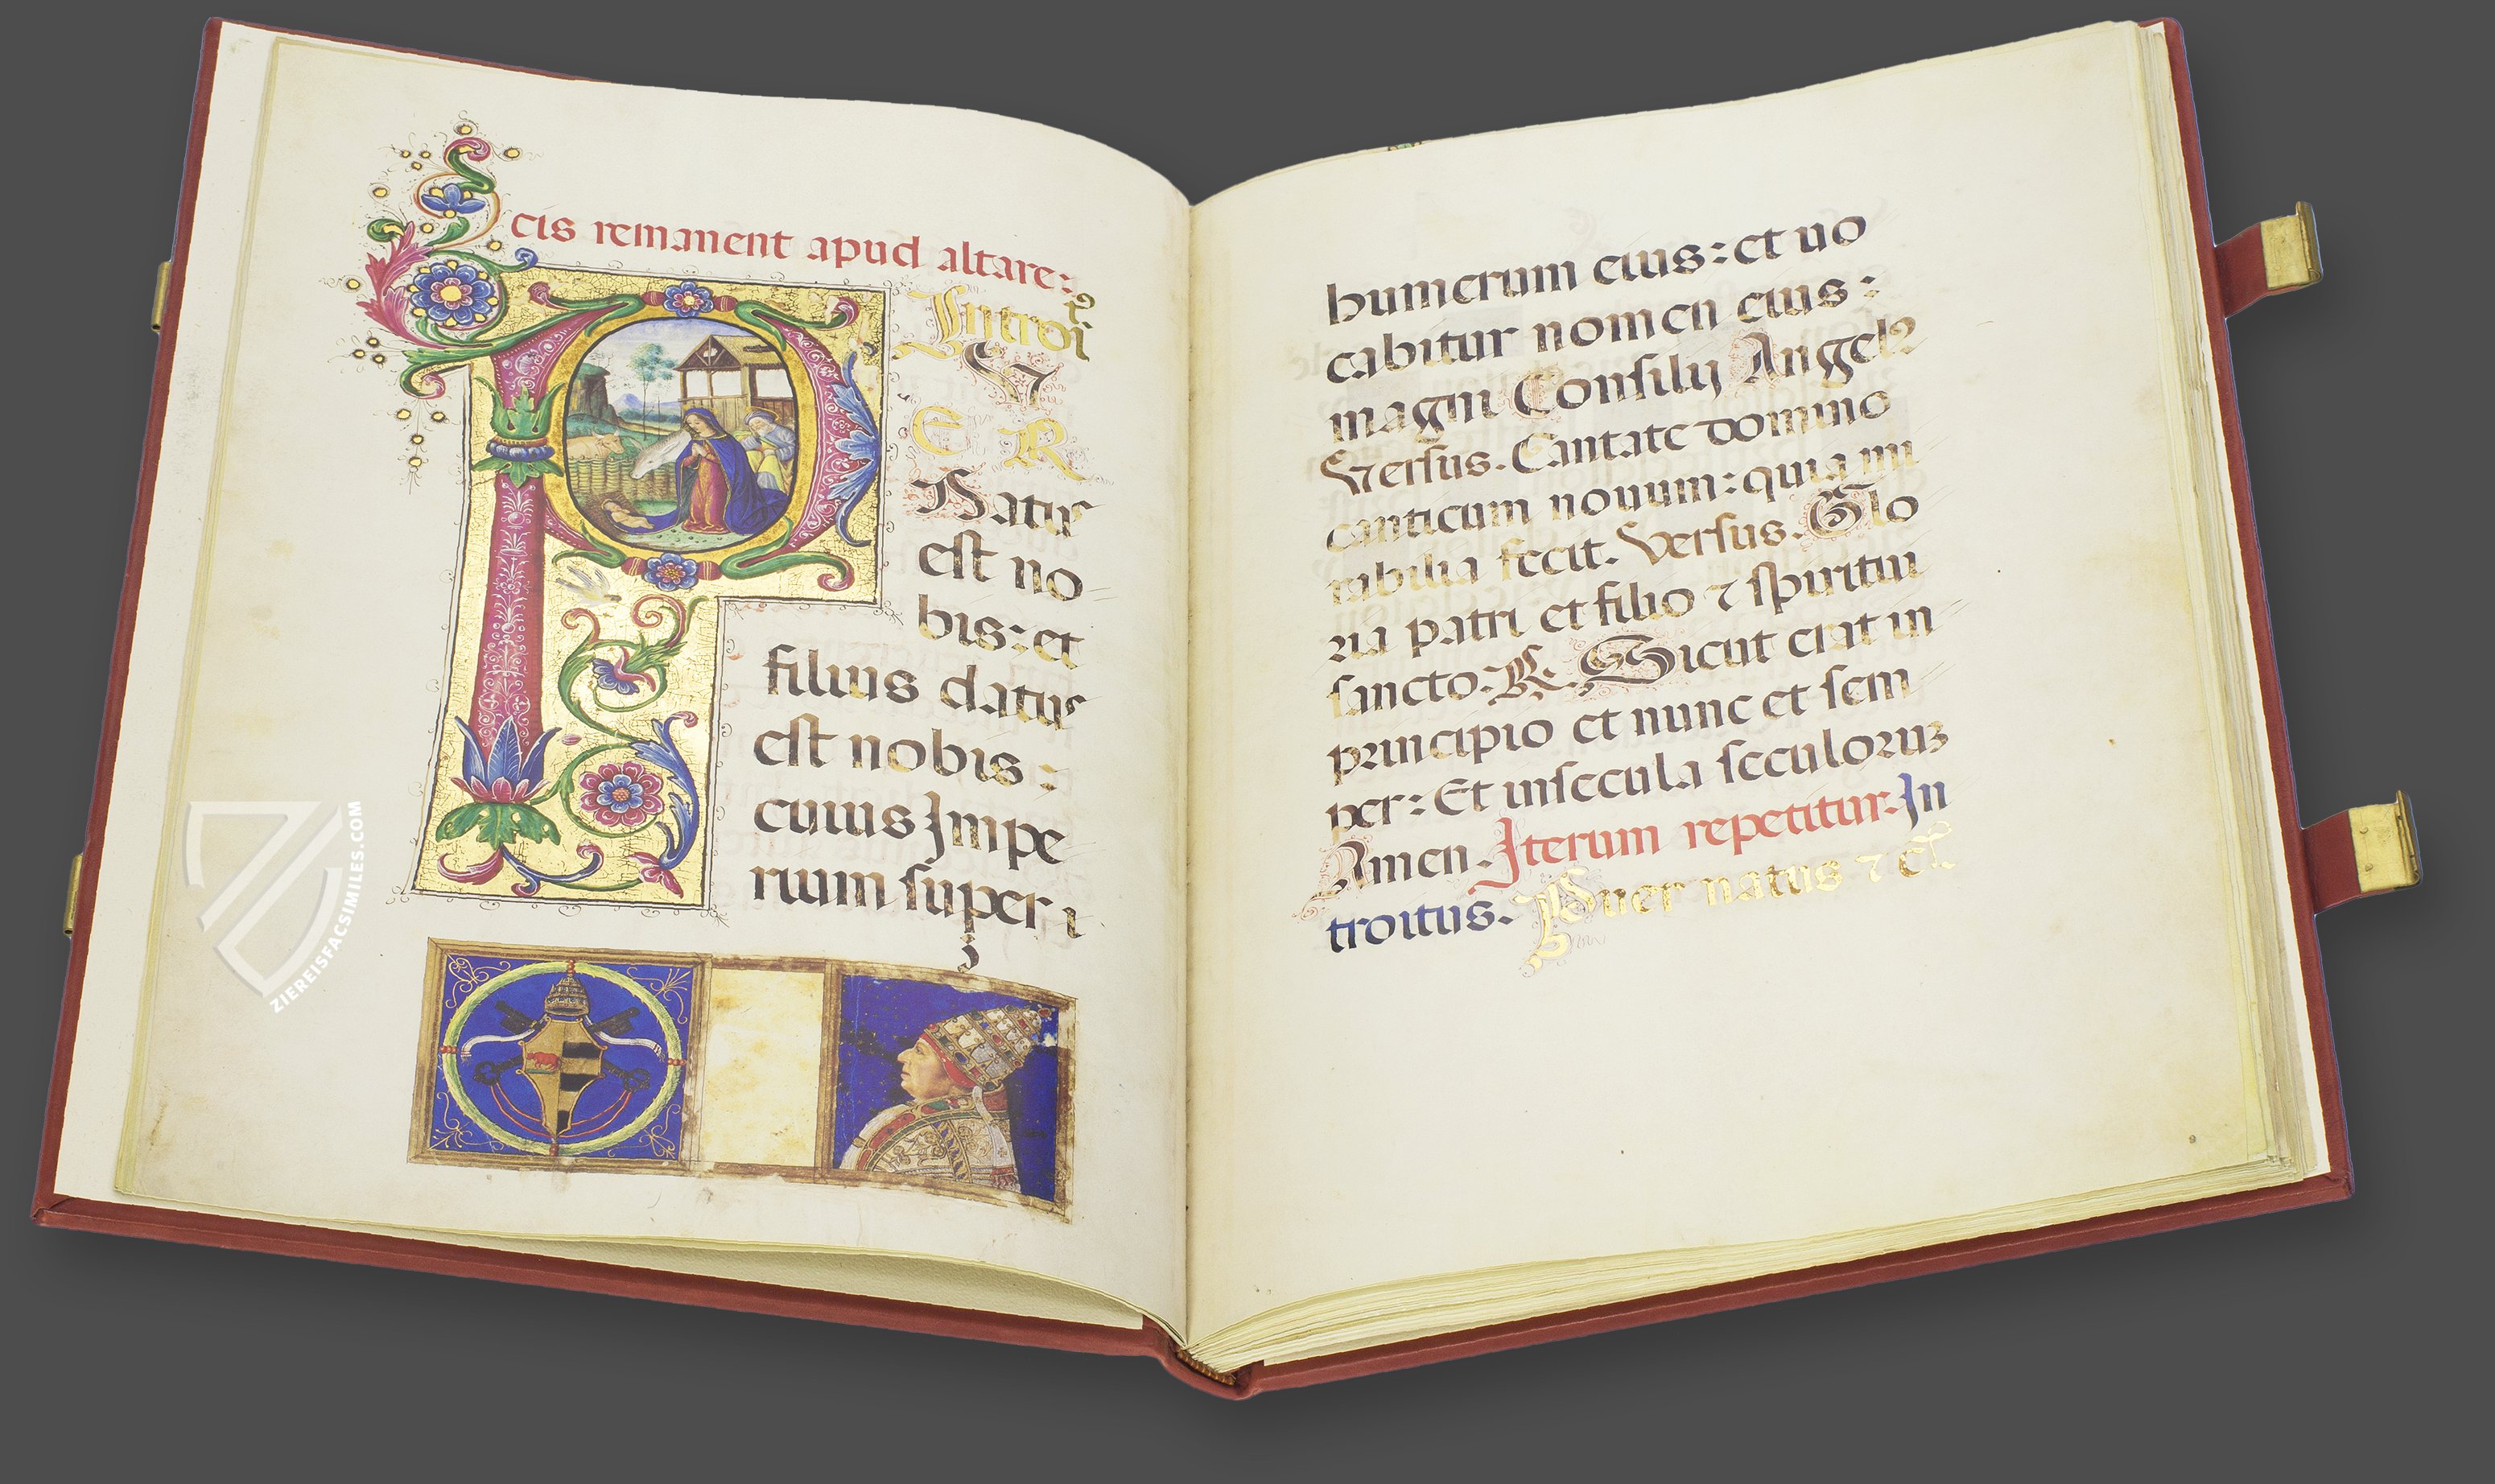 cis remanent apud altare:
Introi
tꝰ
P V
E R
Natus
est no
bis: et
filius datus
est nobis:
cuius Impe
rium super
humerum eius: et uo
cabitur nomen eius:
magni Consilij Angelꝰ
Versus. Cantate domino
canticum nouum: quia mi
rabilia fecit. Versus. Glo
ria patri et filio ⁊ spiritui
sancto. R. Sicut erat in
principio et nunc et sem
per: Et in secula seculoruꝫ
Amen. Iterum repetitur. In
troitus. Puer natus ⁊ c̃.
9
ZIEREISFACSIMILES.COM